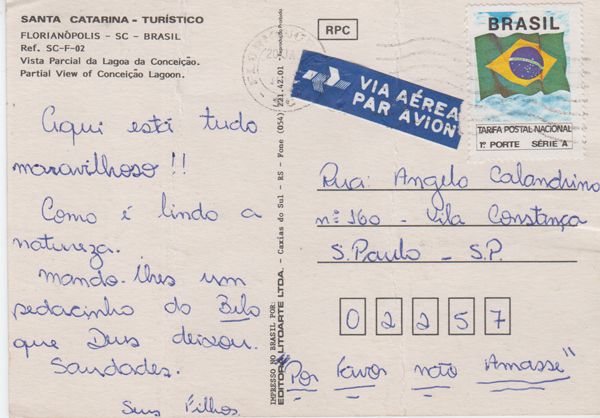 SANTA CATARINA - TURÍSTICO
FLORIANÓPOLIS - SC - BRASIL
Ref. SC-F-02
Vista Parcial da Lagoa da Conceição.
Partial View of Conceição Lagoon.
Aqui está tudo
maravilhoso!!
Como é lindo a
natureza.
mando-lhes um
pedacinho do Belo
que Deus deixou.
Saudades.
Seus Filhos
IMPRESSO NO BRASIL POR:
EDITORA LITOARTE LTDA. - Caxias do Sul - RS - Fone (054) 221.42.01 - Reprodução Proibida
RPC
VIA AÉREA
PAR AVION
BRASIL
TARIFA POSTAL NACIONAL
1º PORTE SÉRIE A
Rua: Angelo Calandrino
nº 160 - Vila Constança
S. Paulo - S.P.
02257
"Por Favor não Amasse"